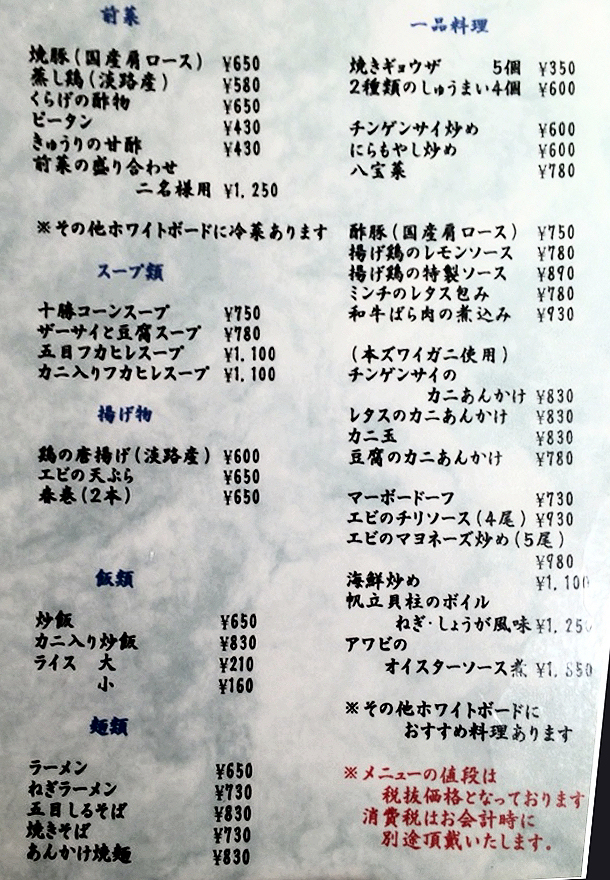 前菜
焼豚(国産肩ロース) ¥650
蒸し鶏(淡路産) ¥580
くらげの酢物 ¥650
ピータン ¥430
きゅうりの甘酢 ¥430
前菜の盛り合わせ
二名様用 ¥1,250
※その他ホワイトボードに冷菜あります
スープ類
十勝コーンスープ ¥750
ザーサイと豆腐スープ ¥780
五目フカヒレスープ ¥1,100
カニ入りフカヒレスープ ¥1,100
揚げ物
鶏の唐揚げ(淡路産) ¥600
エビの天ぷら ¥650
春巻(2本) ¥650
飯類
炒飯 ¥650
カニ入り炒飯 ¥830
ライス 大 ¥210
小 ¥160
麺類
ラーメン ¥650
ねぎラーメン ¥730
五目しるそば ¥830
焼きそば ¥730
あんかけ焼麺 ¥830
一品料理
焼きギョウザ 5個 ¥350
2種類のしゅうまい4個 ¥600
チンゲンサイ炒め ¥600
にらもやし炒め ¥600
八宝菜 ¥780
酢豚(国産肩ロース) ¥750
揚げ鶏のレモンソース ¥780
揚げ鶏の特製ソース ¥890
ミンチのレタス包み ¥780
和牛ばら肉の煮込み ¥930
(本ズワイガニ使用)
チンゲンサイの
カニあんかけ ¥830
レタスのカニあんかけ ¥830
カニ玉 ¥830
豆腐のカニあんかけ ¥780
マーボードーフ ¥730
エビのチリソース(4尾) ¥930
エビのマヨネーズ炒め(5尾)
¥980
海鮮炒め ¥1,100
帆立貝柱のボイル
ねぎ・しょうが風味 ¥1,250
アワビの
オイスターソース煮
※その他ホワイトボードに
おすすめ料理あります
※メニューの値段は
税抜価格となっております
消費税はお会計時に
別途頂戴いたします。